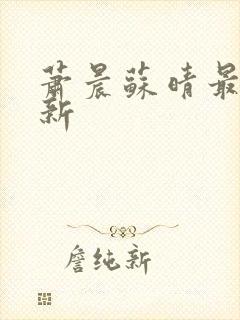 萧晨苏晴最
新
詹纯新